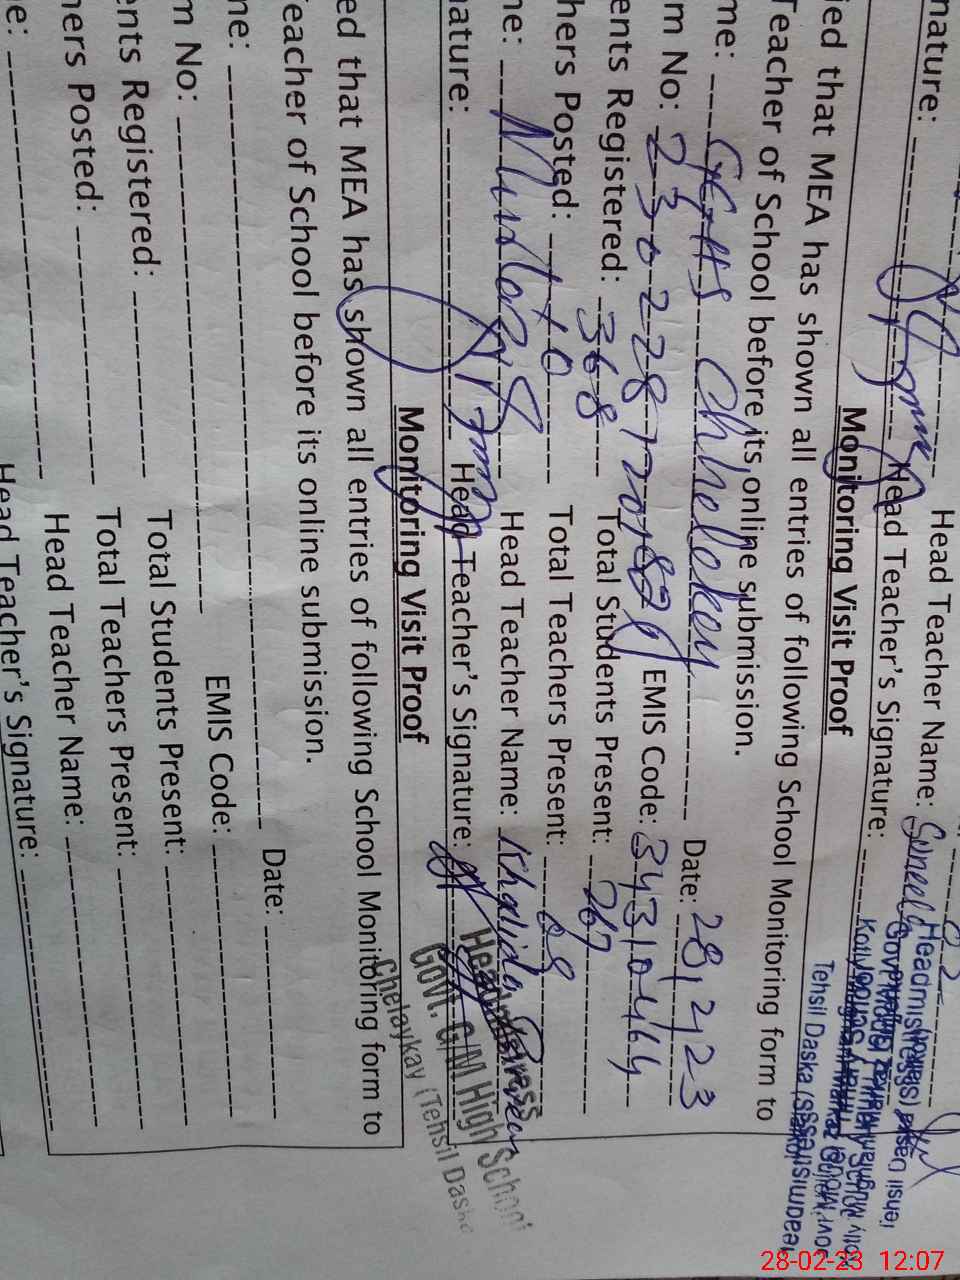 Head Teacher Name: Suneela
nature: Head Teacher's Signature:
Headmistress
Tehsil Daska
Monitoring Visit Proof
ied that MEA has shown all entries of following School Monitoring form to
Teacher of School before its online submission.
me: GGHS Chheleky Date: 28/2/23
m No: EMIS Code: 34310464
ents Registered: 368 Total Students Present: 267
hers Posted: 10 Total Teachers Present: 08
ne: Mushtaq Head Teacher Name: Khalida Parveen
nature: Head Teacher's Signature:
Headmistress
Govt. G/M High School
Chelaykay (Tehsil Daska
Monitoring Visit Proof
ed that MEA has shown all entries of following School Monitoring form to
Teacher of School before its online submission.
ne: Date:
m No: EMIS Code:
ents Registered: Total Students Present:
hers Posted: Total Teachers Present:
e: Head Teacher Name:
Head Teacher's Signature:
28-02-23 12:07